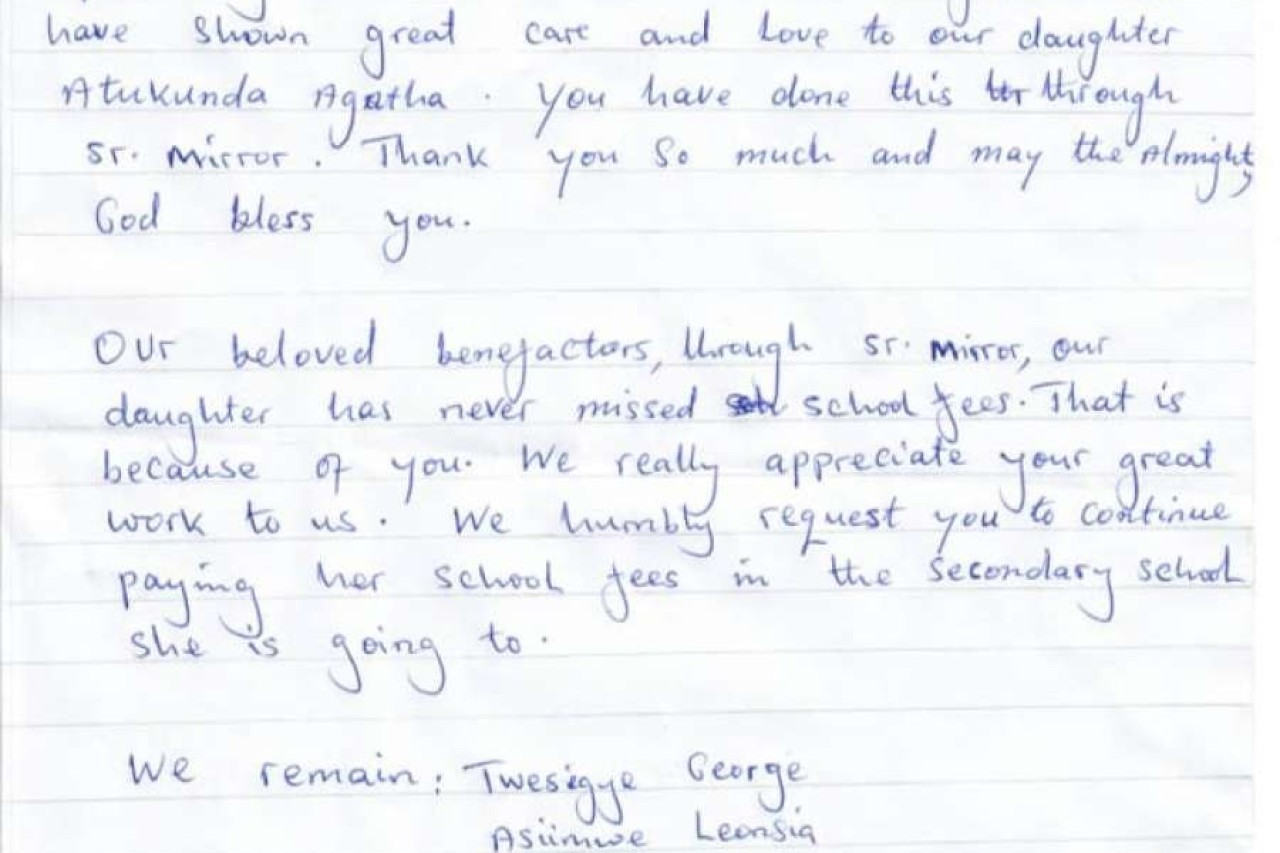 have shown great care and love to our daughter
Atukunda Agatha. You have done this through
Sr. Mirror. Thank you so much and may the Almighty
God bless you.
Our beloved benefactors, through Sr. Mirror, our
daughter has never missed school fees. That is
because of you. We really appreciate your great
work to us. We humbly request you to continue
paying her school fees in the secondary school
she is going to.
We remain: Twesigye George
Asiimwe Leonsia